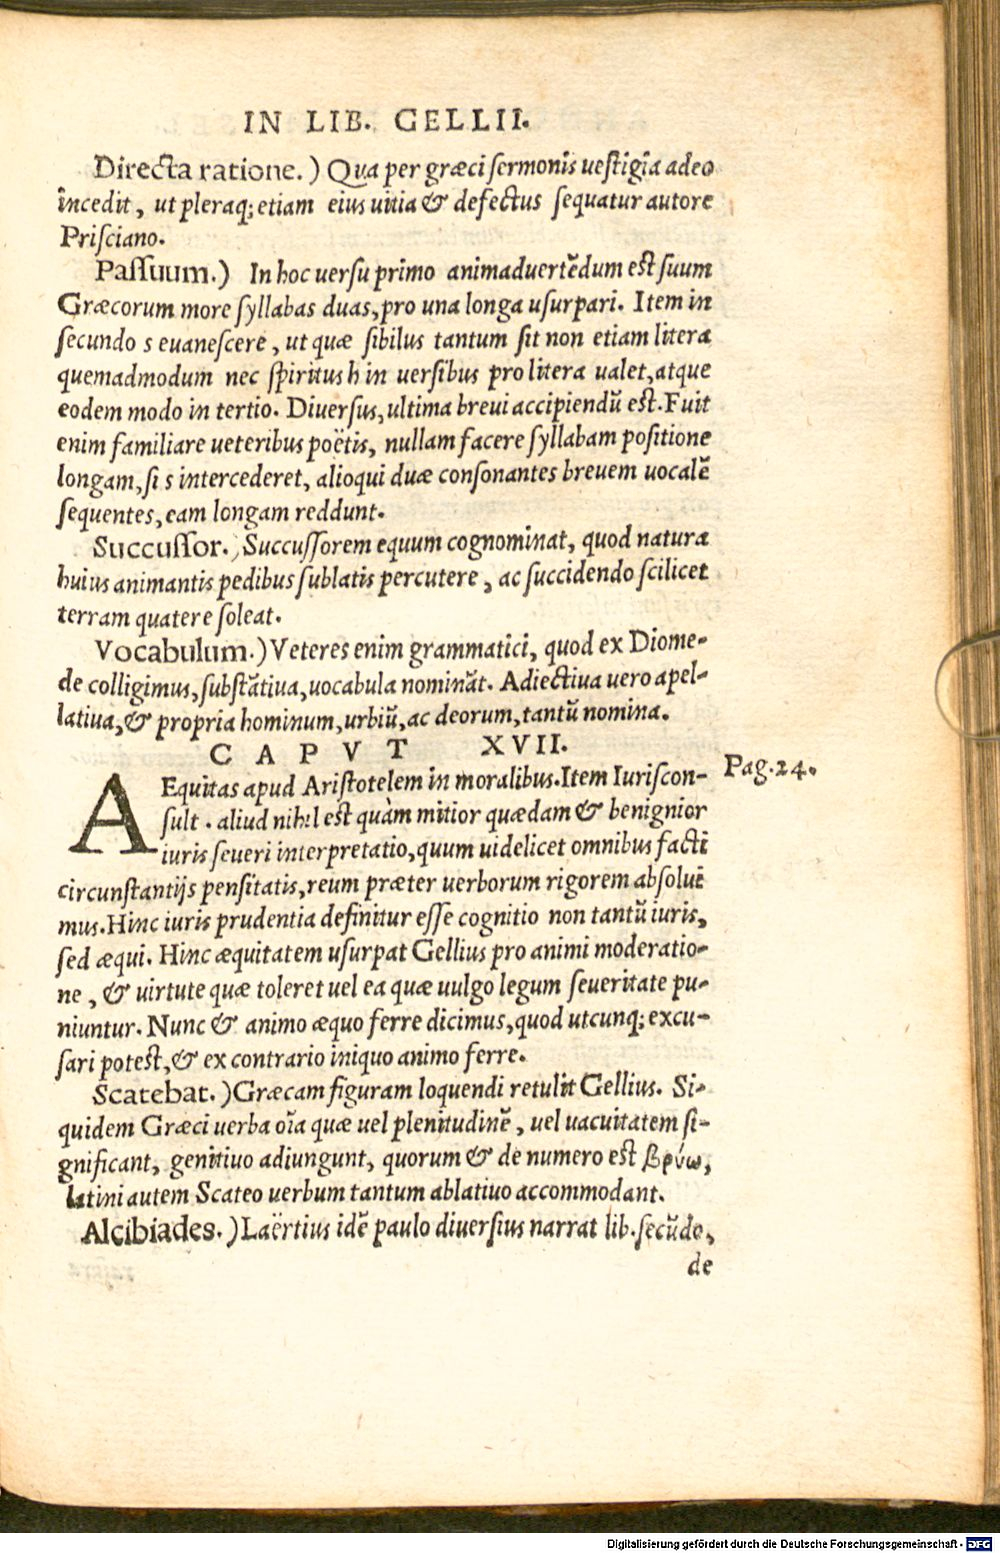 IN LIB. GELLII.
Directa ratione.) Qua per græci sermonis uestigia adeo
incedit, ut pleraq; etiam eius uitia & defectus sequatur autore
Prisciano.
Passuum.) In hoc uersu primo animaduertēdum est suum
Græcorum more syllabas duas, pro una longa usurpari. Item in
secundo s euanescere, ut quæ sibilus tantum sit non etiam litera
quemadmodum nec spiritus h in uersibus pro litera ualet, atque
eodem modo in tertio. Diuersus, ultima breui accipiendū est. Fuit
enim familiare ueteribus poëtis, nullam facere syllabam positione
longam, si s intercederet, alioqui duæ consonantes breuem uocalē
sequentes, eam longam reddunt.
Succussor.) Succussorem equum cognominat, quod natura
huius animantis pedibus sublatis percutere, ac succidendo scilicet
terram quatere soleat.
Vocabulum.) Veteres enim grammatici, quod ex Diome-
de colligimus, substātiua, uocabula nomināt. Adiectiua uero apel-
latiua, & propria hominum, urbiū, ac deorum, tantū nomina.
CAPVT XVII.
Pag. 24.
AEquitas apud Aristotelem in moralibus. Item Iuriscon-
sult. aliud nihil est quàm mitior quædam & benignior
iuris seueri interpretatio, quum uidelicet omnibus facti
circunstantijs pensitatis, reum præter uerborum rigorem absolui
mus. Hinc iuris prudentia definitur esse cognitio non tantū iuris,
sed æqui. Hinc æquitatem usurpat Gellius pro animi moderatio-
ne, & uirtute quæ toleret uel ea quæ uulgo legum seueritate pu-
niuntur. Nunc & animo æquo ferre dicimus, quod utcunq; excu-
sari potest, & ex contrario iniquo animo ferre.
Scatebat.) Græcam figuram loquendi retulit Gellius. Si-
quidem Græci uerba oīa quæ uel plenitudinē, uel uacuitatem si-
gnificant, genitiuo adiungunt, quorum & de numero est βρύω,
latini autem Scateo uerbum tantum ablatiuo accommodant.
Alcibiades.) Laërtius idē paulo diuersius narrat lib. secūdo,
de
Digitalisierung gefördert durch die Deutsche Forschungsgemeinschaft - DFG